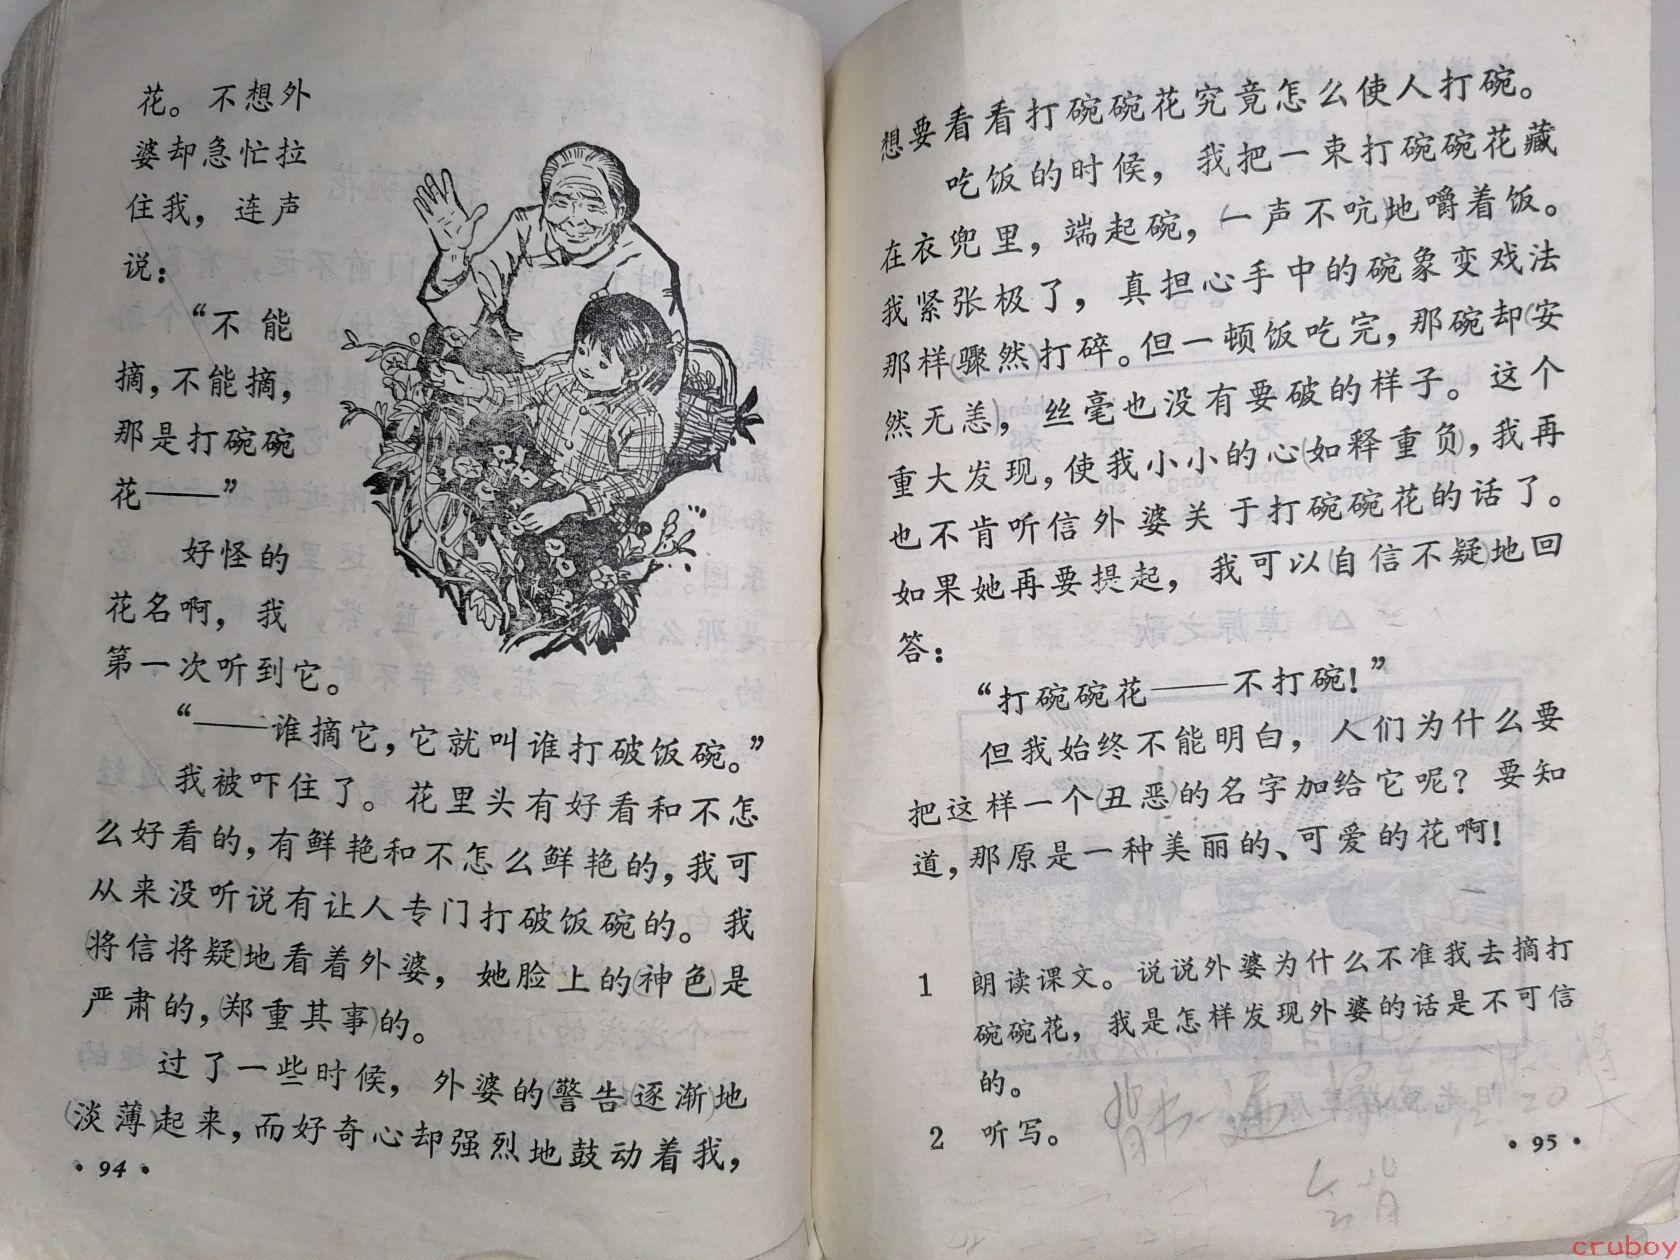 花。不想外
婆却急忙拉
住我，连声
说：
“不能
摘，不能摘，
那是打碗碗
花——”
好怪的
花名啊，我
第一次听到它。
“——谁摘它，它就叫谁打破饭碗。”
我被吓住了。花里头有好看和不怎
么好看的，有鲜艳和不怎么鲜艳的，我可
从来没听说有让人专门打破饭碗的。我
(将信将疑)地看着外婆，她脸上的(神色)是
严肃的，(郑重其事)的。
过了一些时候，外婆的(警告)(逐渐)地
(淡薄)起来，而好奇心却强烈地鼓动着我，
·94·
想要看看打碗碗花究竟怎么使人打碗。
吃饭的时候，我把一束打碗碗花藏
在衣兜里，端起碗，(一声不吭)地嚼着饭。
我紧张极了，真担心手中的碗象变戏法
那样(骤然)打碎。但一顿饭吃完，那碗却(安
然无恙)，丝毫也没有要破的样子。这个
重大发现，使我小小的心(如释重负)，我再
也不肯听信外婆关于打碗碗花的话了。
如果她再要提起，我可以(自信不疑)地回
答：
“打碗碗花——不打碗！”
但我始终不能明白，人们为什么要
把这样一个(丑恶)的名字加给它呢？要知
道，那原是一种美丽的、可爱的花啊！
1 朗读课文。说说外婆为什么不准我去摘打
碗碗花，我是怎样发现外婆的话是不可信
的。
2 听写。
背书一遍
·95·
会背
cruboy